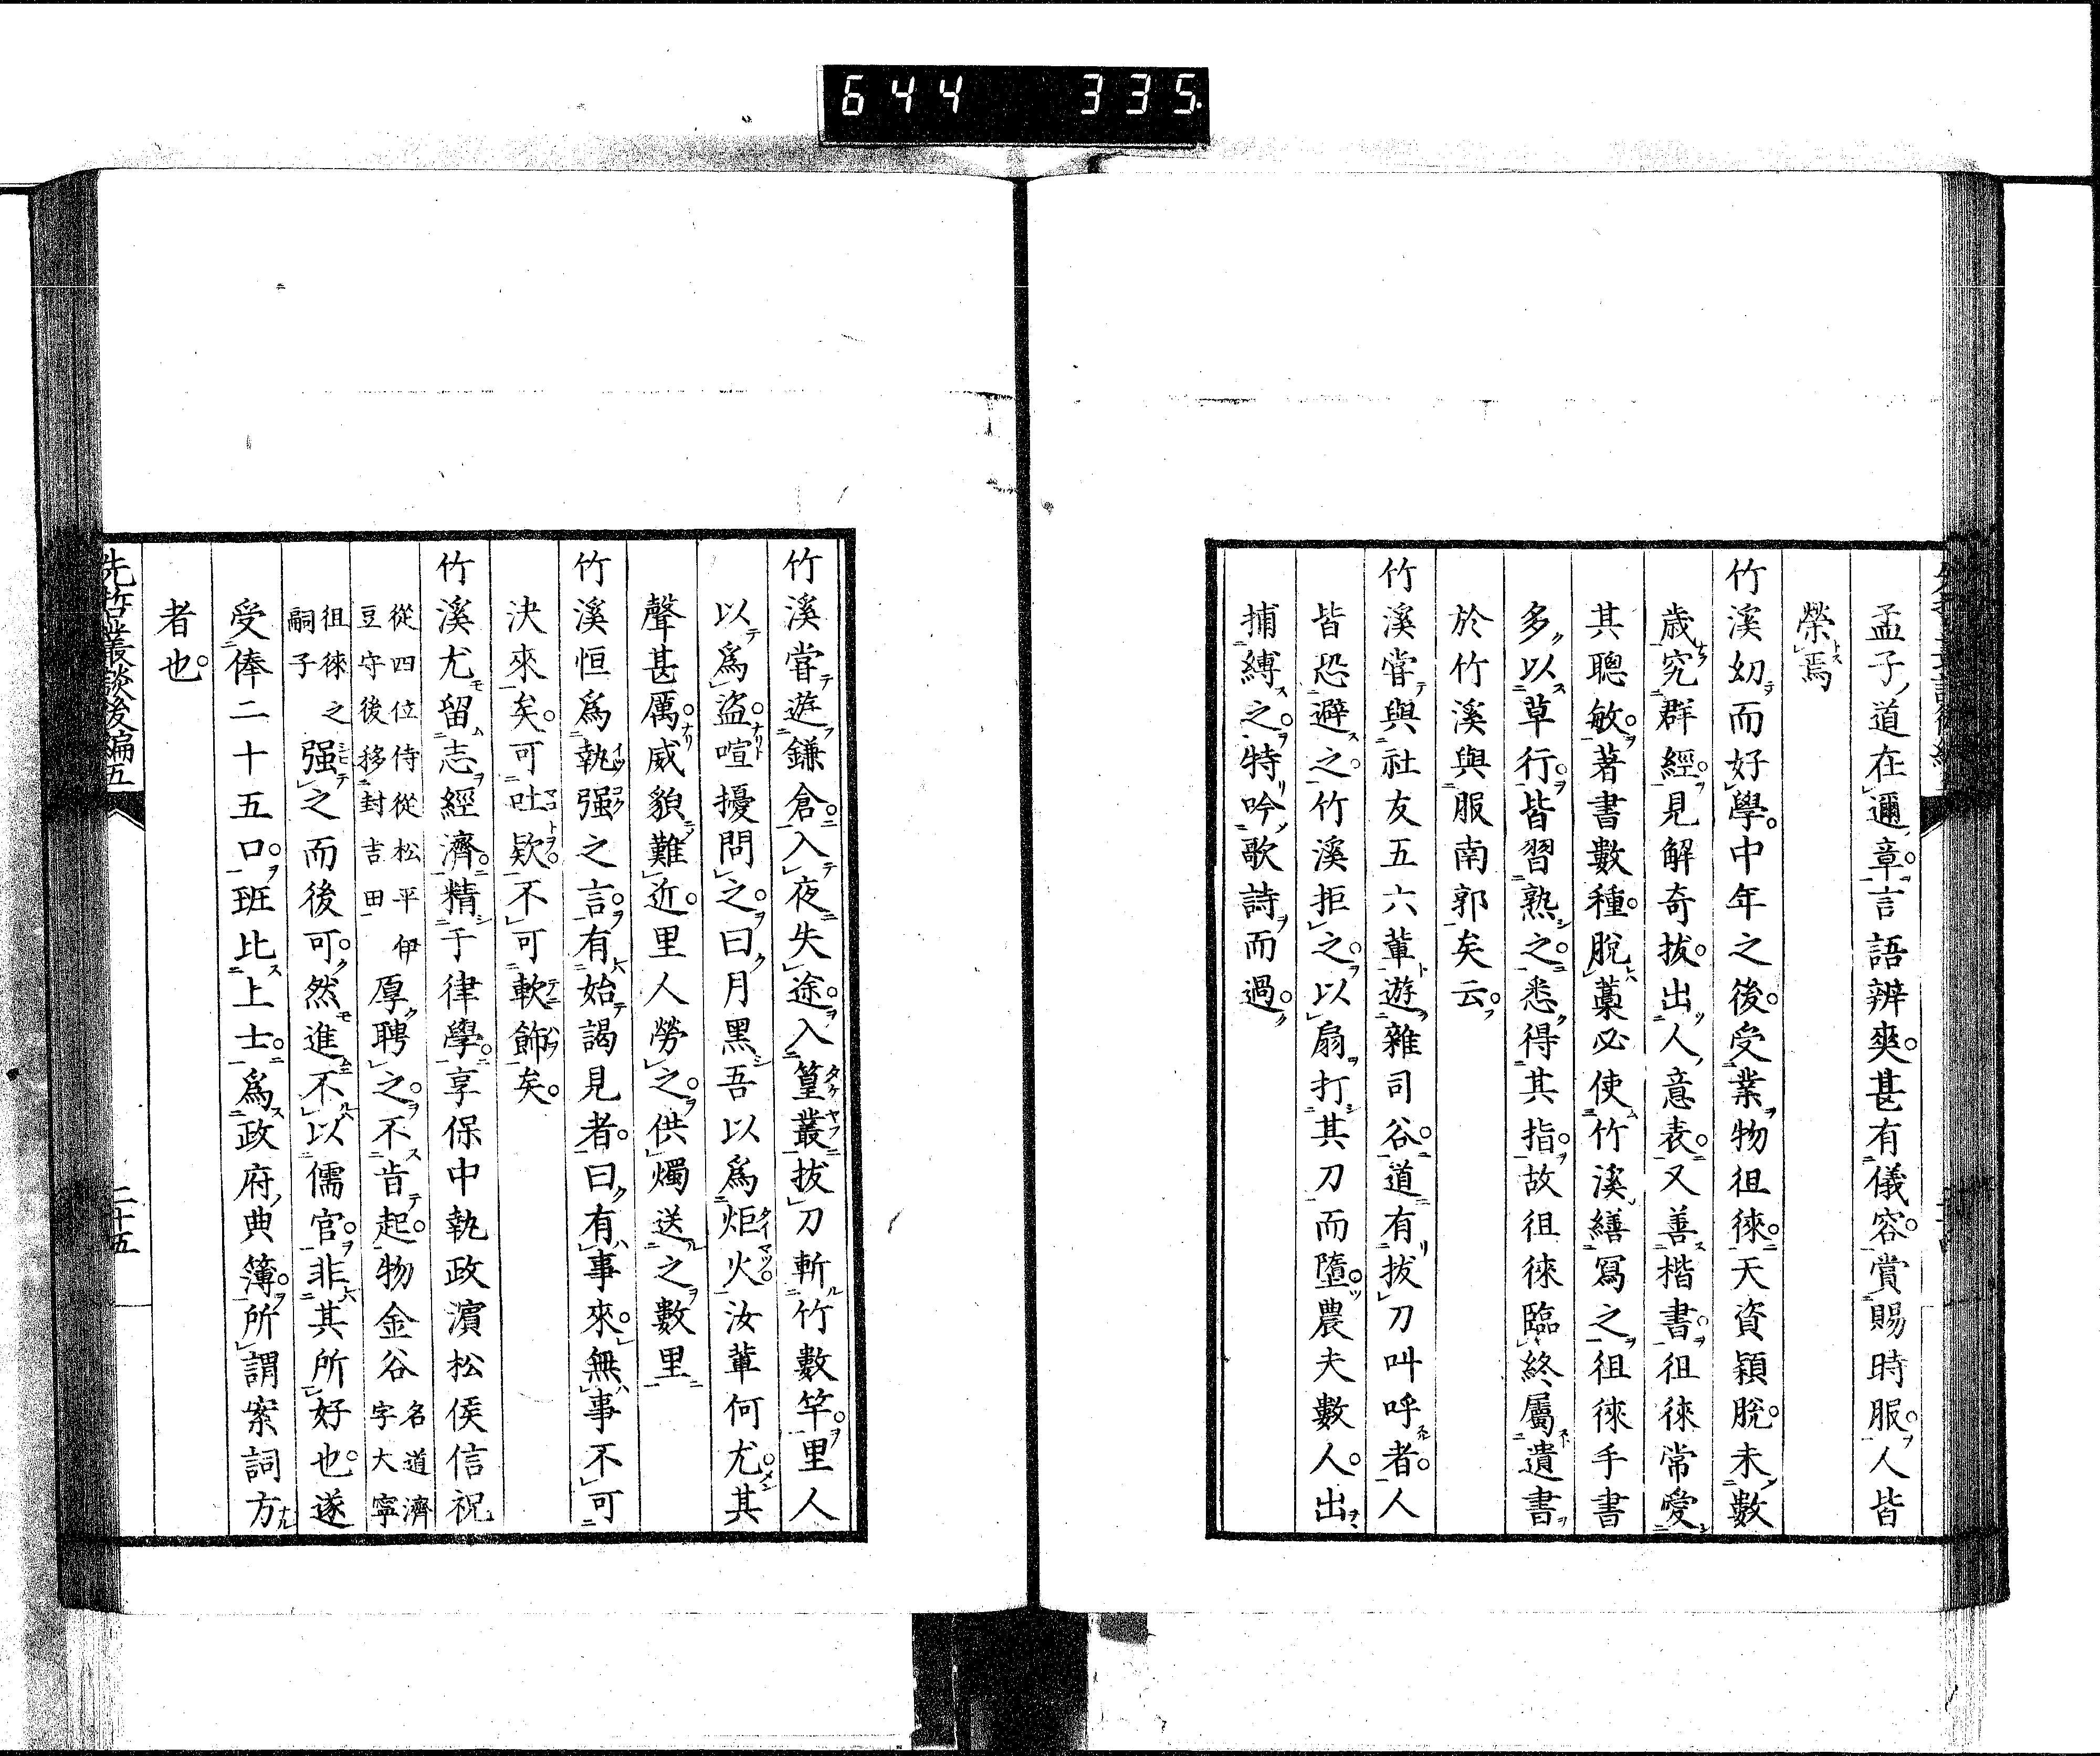 644 335
孟子道在邇章。言語辨爽。甚有儀容。賞賜時服。人皆
榮焉
竹溪幼而好學。中年之後。受業物徂徠。天資穎脫。未數
歲究群經。見解奇拔。出人意表。又善楷書。徂徠常愛
其聰敏。著書數種。脫藁必使竹溪繕寫之。徂徠手書
多以草行。皆習熟之。悉得其指。故徂徠臨終屬遺書
於竹溪與服南郭矣云。
竹溪嘗與社友五六輩遊雜司谷。道有拔刀叫呼者。人
皆恐避之。竹溪拒之。以扇打其刀而墮。農夫數人。出
捕縛之。特吟歌詩而過。
竹溪嘗遊鎌倉。入夜失途。入篁叢拔刀斬竹數竿。里人
以爲盜。喧擾問之。曰月黑吾以爲炬火。汝輩何尤。其
聲甚厲。威貌難近。里人勞之。供燭送之數里
竹溪恒爲執强之言。有始謁見者。曰有事來。無事不可
決來矣。可吐欵。不可軟飾矣。
竹溪尤留志經濟。精于律學。享保中執政濵松侯信祝
從四位侍從松平伊豆守後移封吉田厚聘之。不肯起。物金谷名道濟字大寧
徂徠之嗣子强之而後可。然進不以儒官。非其所好也。遂
受俸二十五口。班比上士。爲政府典簿。所謂案詞方
者也。
先哲叢談後編五
二十五